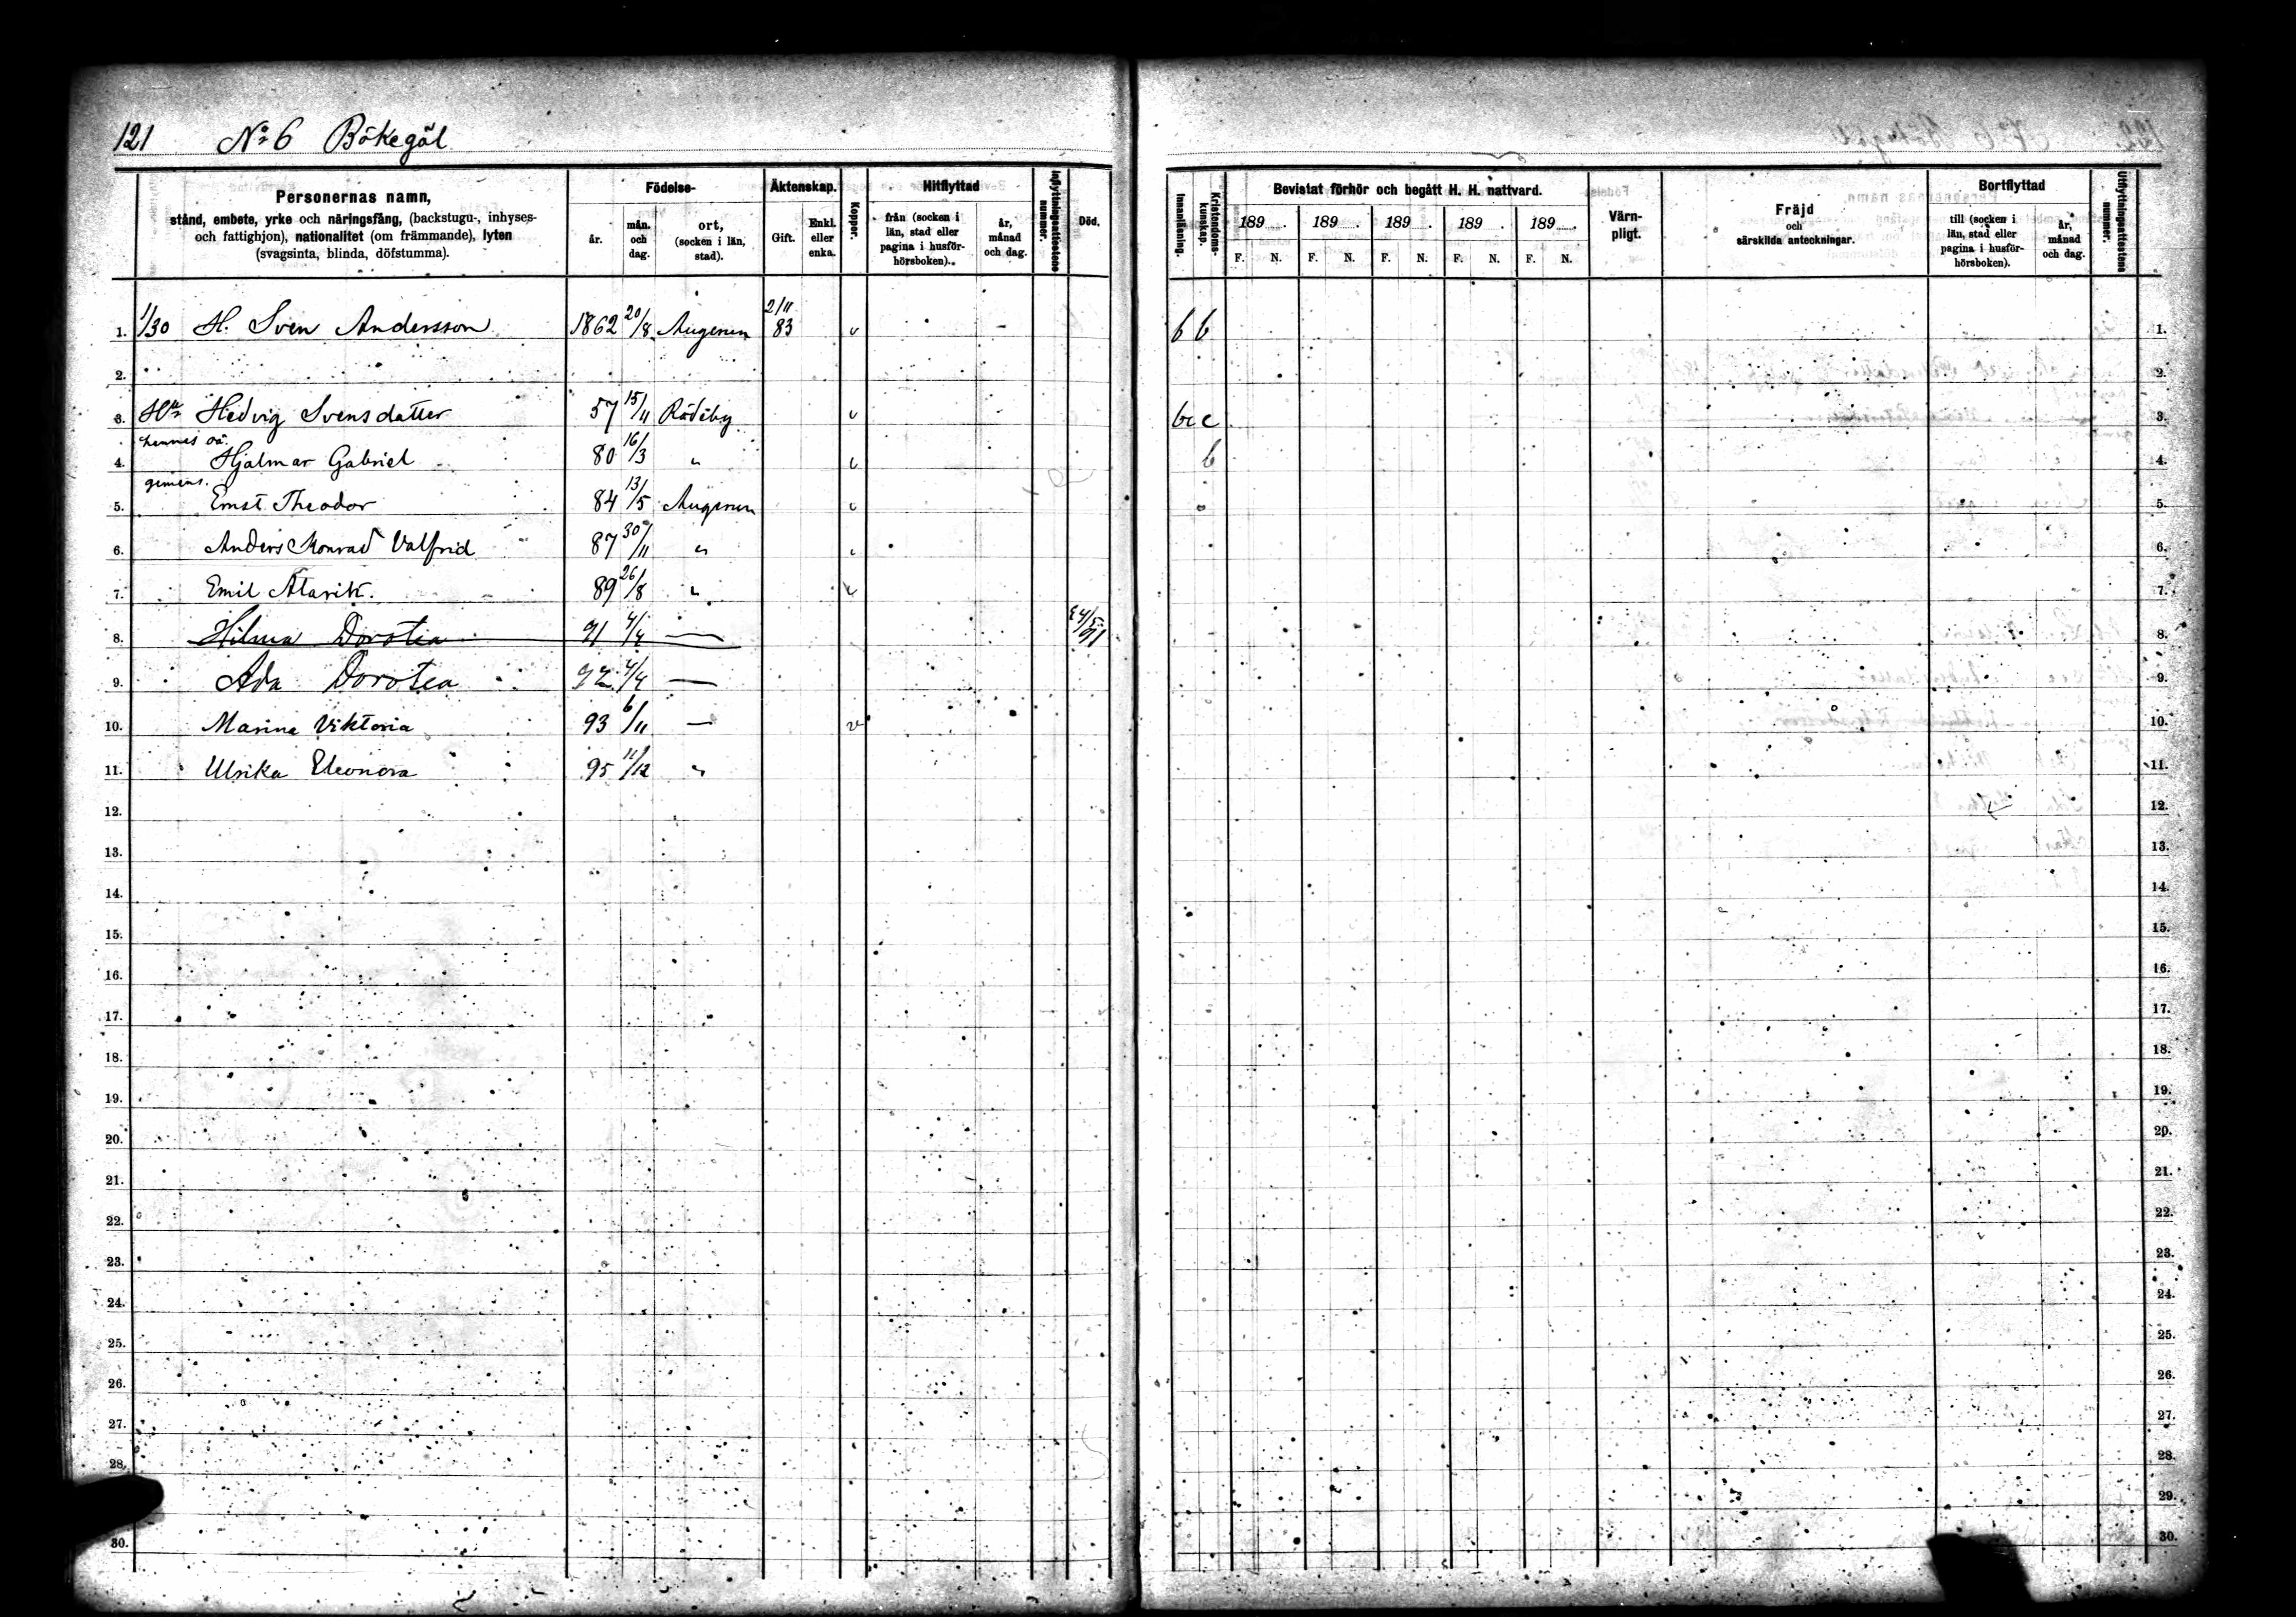 121 No 6 Bökegöl
Personernas namn,
stånd, embete, yrke och näringsfång, (backstugu-, inhyses-
och fattighjon), nationalitet (om främmande), lyten
(svagsinta, blinda, döfstumma).
Födelse-
år.
mån.
och
dag.
ort,
(socken i län,
stad).
Äktenskap.
Gift.
Enkl.
eller
enka.
Koppor.
Hitflyttad
från (socken i
län, stad eller
pagina i husför-
hörsboken).
år,
månad
och dag.
Inflyttningsattestens
nummer.
Död.
Innanläsning.
Kristendoms-
kunskap.
Bevistat förhör och begått H. H. nattvard.
189 . 189 . 189 . 189 . 189 .
F. N. F. N. F. N. F. N. F. N.
Värn-
pligt.
Fräjd
och
särskilda anteckningar.
Bortflyttad
till (socken i
län, stad eller
pagina i husför-
hörsboken).
år,
månad
och dag.
Utflyttningsattestens
nummer.
1. 1/30 H. Sven Andersson 1862 20/8 Augerum 2/11 83 v b b 1.
2. 2.
3. Hu Hedvig Svensdatter 57 15/11 Rödeby v bc c 3.
hennes oä.
4. Hjalmar Gabriel 80 16/3 " v b 4.
gemens.
5. Ernst Theodor 84 13/5 Augerum v 5.
6. Anders Konrad Valfrid 87 30/11 " v 6.
7. Emil Alarik. 89 26/8 " v 7.
8. Hilma Dorotea 91 4/4 — 24/5 91 8.
9. Ada Dorotea 92 4/4 — 9.
10. Marina Viktoria 93 6/11 — v 10.
11. Ulrika Eleonora 95 11/12 " 11.
12. 12.
13. 13.
14. 14.
15. 15.
16. 16.
17. 17.
18. 18.
19. 19.
20. 20.
21. 21.
22. 22.
23. 23.
24. 24.
25. 25.
26. 26.
27. 27.
28. 28.
29.
30. 30.